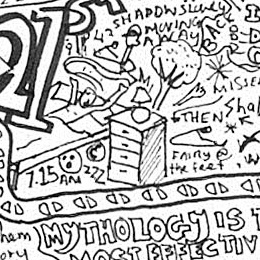 21st
SHADOW slowly
MOVING
AWAY
MISSE
THEN
Shad
FAIRY @
the feet
7.15 AM
zzz
hem
ory
MYTHOLOGY IS T
MOST EFFECTIV